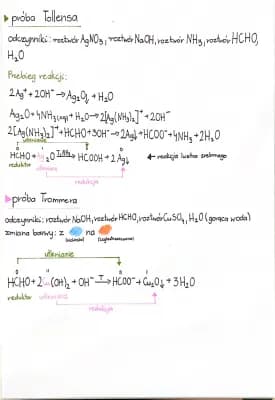 próba Tollensa
odczynniki: roztwór AgNO₃, roztwór NaOH, roztwór NH₃, roztwór HCHO,
H₂O
Przebieg reakcji:
2Ag⁺ + 2OH⁻ → Ag₂O↓ + H₂O
Ag₂O + 4NH₃(aq) + H₂O → 2[Ag(NH₃)₂]⁺ + 2OH⁻
2[Ag(NH₃)₂]⁺ + HCHO + 3OH⁻ → 2Ag↓ + HCOO⁻ + 4NH₃ + 2H₂O
utlenianie
0 I II 0
HCHO + Ag₂O T, NH₃ → HCOOH + 2Ag↓ ← reakcja lustra srebrnego
reduktor utleniacz
redukcja
próba Trommera
odczynniki: roztwór NaOH, roztwór HCHO, roztwór CuSO₄, H₂O (gorąca woda)
zmiana barwy: z na
(niebieski) (ceglastoczerwony)
utlenianie
0 II II I
HCHO + 2Cu(OH)₂ + OH⁻ T → HCOO⁻ + Cu₂O↓ + 3H₂O
reduktor utleniacz
redukcja